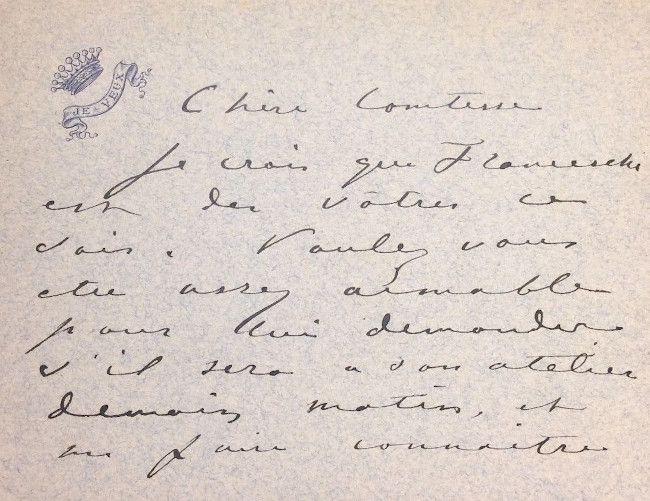 JE VEUX
Chère Comtesse
Je crois que Franceschi
est des vôtres ce
soir. Voulez vous
etre assez aimable
pour lui demander
s'il sera a son atelier
demain matin, et
me faire connaitre